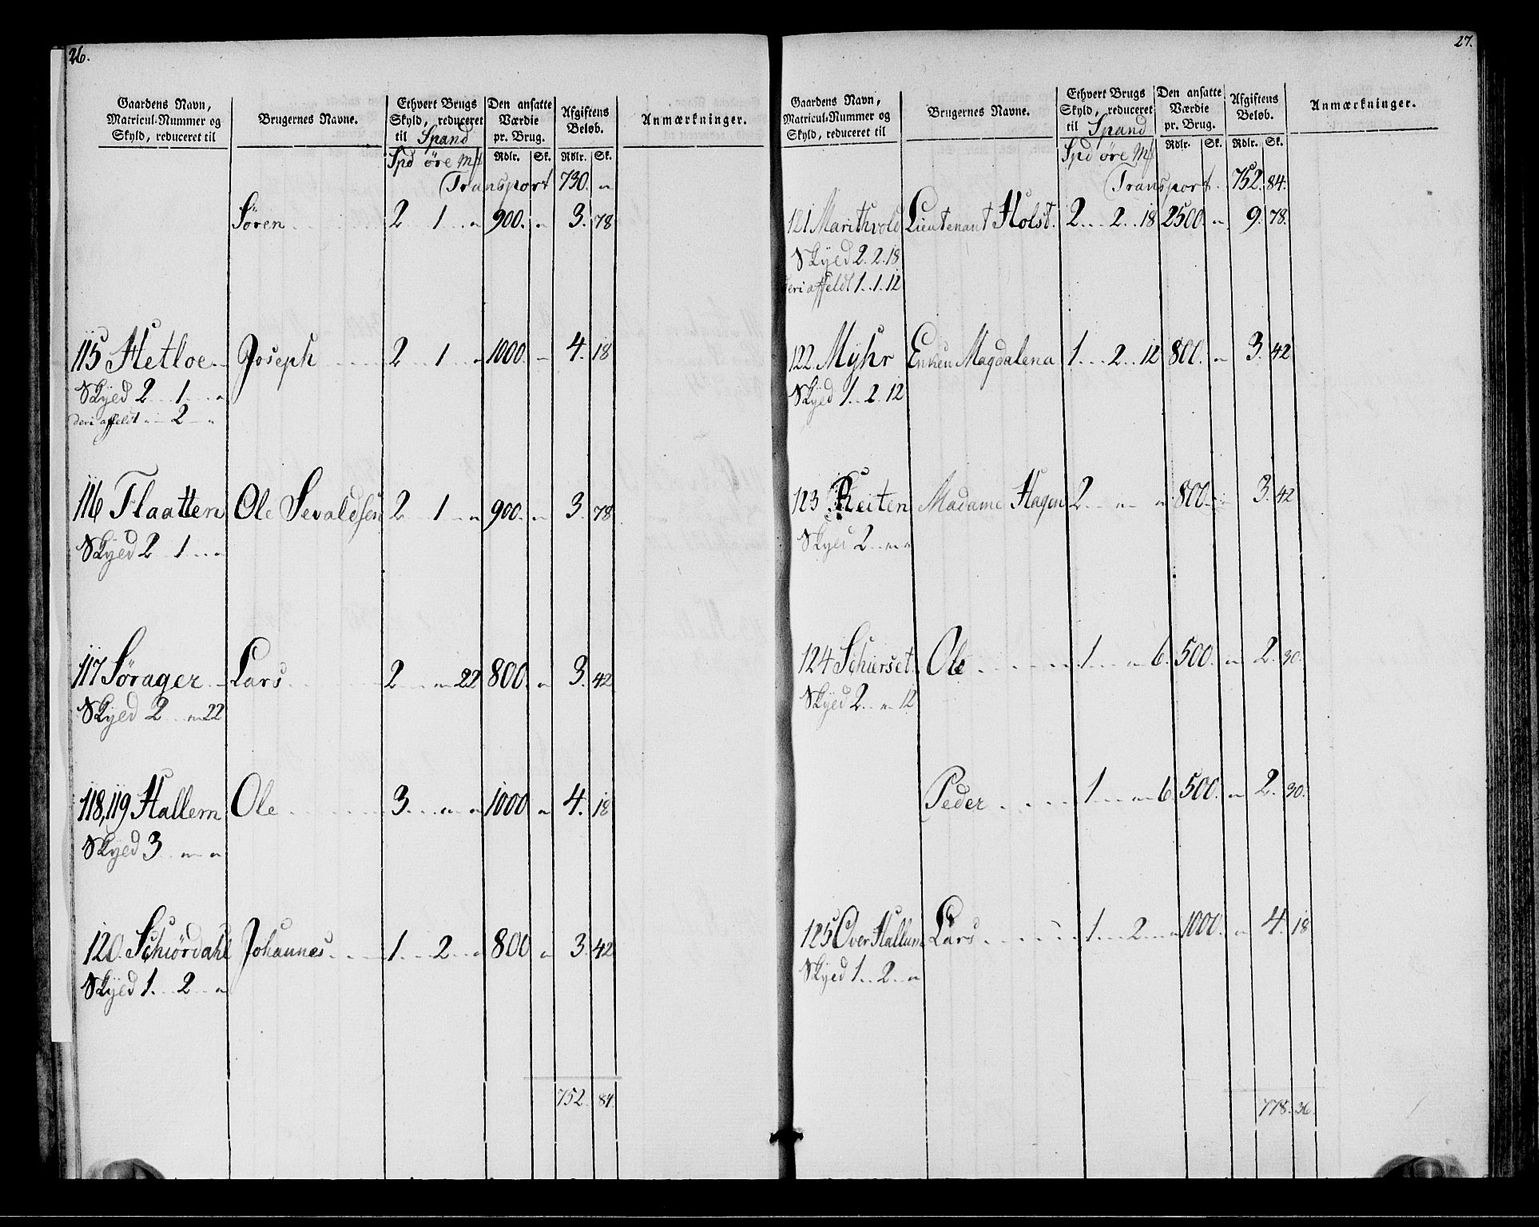 26.
Gaardens Navn, Matricul-Nummer og Skyld, reduceret til
Brugernes Navne.
Ethvert Brugs Skyld, reduceret til Spand
Den ansatte Værdie pr. Brug.
Afgiftens Beløb.
Anmærkninger.
Spd øre Mk Rdlr. Sk. Rdlr. Sk.
Transport 730. "
Søren 2 1 " 900. " 3. 78
115 Hetloe Joseph 2 1 " 1000. " 4. 18
Skyed 2 1 "
deri affeldt " 2 "
116 Flaatten Ole Sevaldsen 2 1 " 900. " 3. 78
Skyed 2 1 "
117 Sørager Lars 2 " 22 800. " 3. 42
Skyed 2 " 22
118, 119 Hallem Ole 3 " " 1000 " 4. 18
Skyed 3 " "
120. Schiørdahl Johannes 1 2 " 800 " 3. 42
Skyed 1 2 "
752. 84.
27.
Gaardens Navn, Matricul-Nummer og Skyld, reduceret til
Brugernes Navne.
Ethvert Brugs Skyld, reduceret til Spand
Den ansatte Værdie pr. Brug.
Afgiftens Beløb.
Anmærkninger.
Spd øre Mk Rdlr. Sk. Rdlr. Sk.
Transport. 752. 84.
121 Marithvold Lieutenant Holst. 2 2 18 2500. " 9. 78.
Skyed 2. 2. 18
deri affeldt 1. 1. 12
122. Myhr Enken Magdalena 1 2 12 800. " 3. 42
Skyed 1. 2. 12
123 Reiten Madame Hagen 2 " " 800. " 3. 42
Skyed 2 " "
124 Schierset Ole 1 " 6. 500. " 2. 30.
Skyed 2 " 12
Peder 1 " 6. 500. " 2. 30.
125 Over Hallem Lars 1 2 " 1000. " 4. 18
Skyed 1 2 "
778. 36.